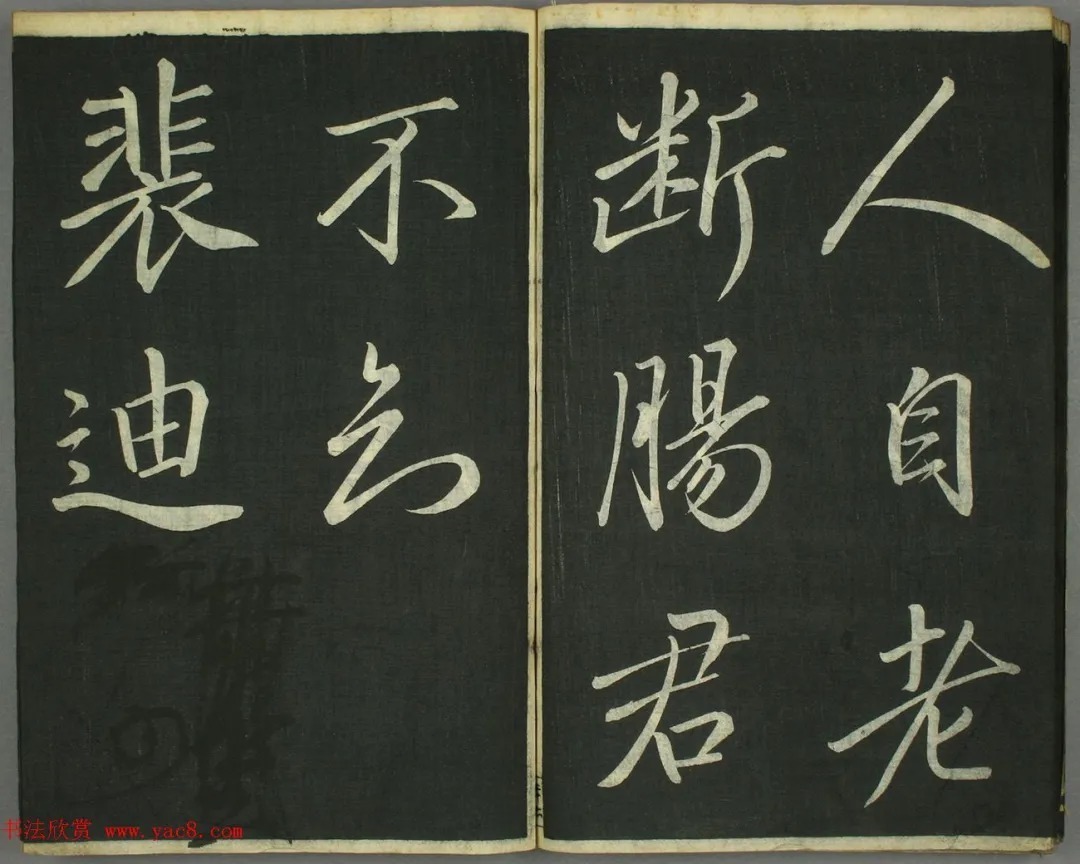 人自老
断腸君
不知
裴迪
书法欣赏 www.yac8.com